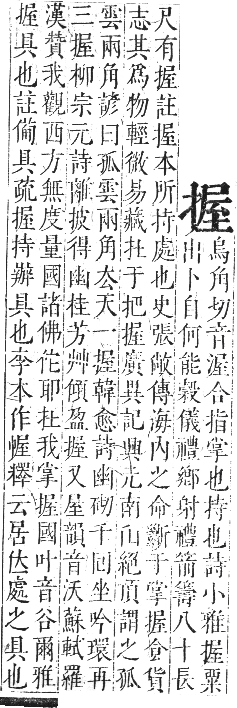 握
烏角切音渥合指掌也持也詩小雅握粟
出卜自何能穀儀禮鄉射禮箭籌八十長
尺有握註握本所持處也史張敞傳海內之命斷于掌握食貨
志其爲物輕微易藏在于把握廣異記興元南山絕頂謂之孤
雲兩角諺曰孤雲兩角去天一握韓愈詩幽砌千回坐吟環再
三握柳宗元詩離披得幽桂芳艸傾盈握又屋韻音沃蘇軾羅
漢贊我觀西方無度量國諸佛佗耶在我掌握國叶音谷爾雅
握具也註備具疏握持辦具也李本作幄釋云居位處之具也